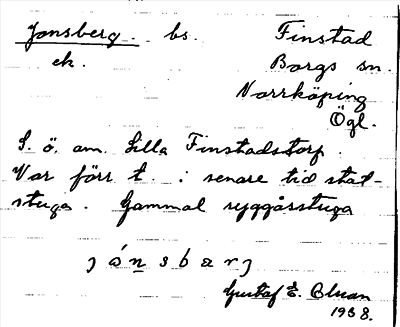 Jonsberg. bs. Finstad
ek. Borgs sn.
Norrköping
Ögl.
S. ö. om Lilla Finstadstorp.
Var förr t. i senare tid stat-
stuga. Gammal ryggåsstuga
Gustaf E. Bluan
1938.